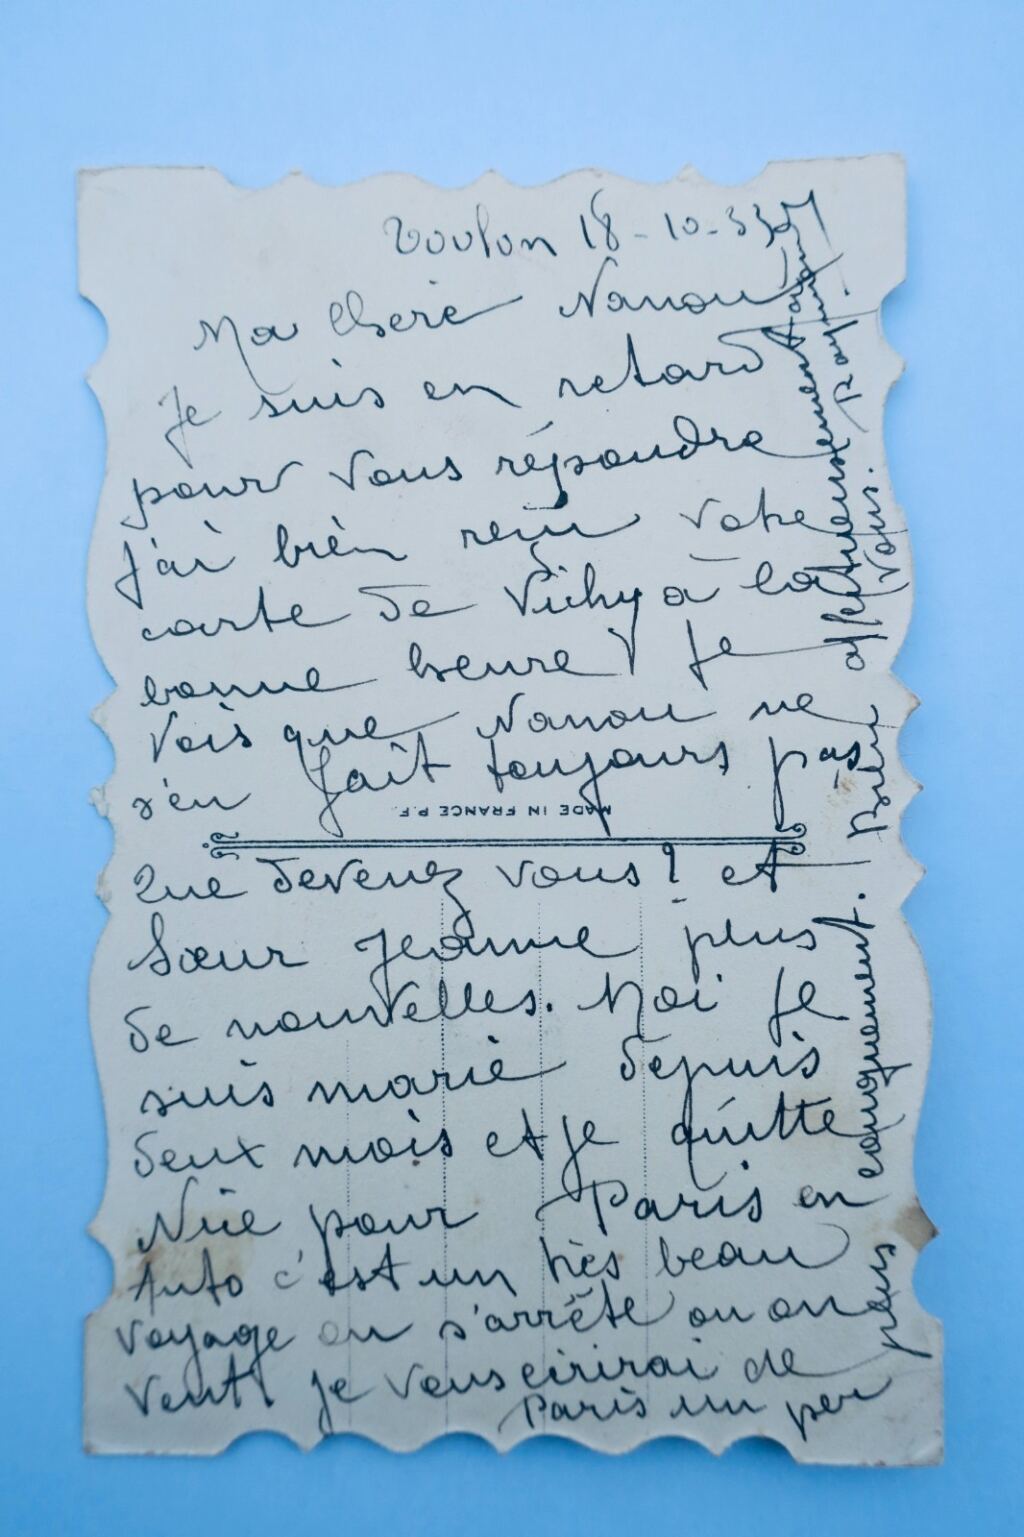 Toulon 18-10-33
Ma Chère Nanou
Je suis en retard
pour vous répondre
j'ai bien reçu votre
carte de Vichy à la
bonne heure! Je
vois que Nanou ne
s'en fait toujours pas
MADE IN FRANCE P.F.
Que devenez vous? et
Sœur Jeanne plus
de nouvelles. Moi je
suis marié depuis
deux mois et je quitte
Nice pour Paris en
Auto c'est un très beau
voyage on s'arrête ou on
veut. je vous ecrirai de
Paris un peu
plus longuement. Bien affectueusement à
vous.